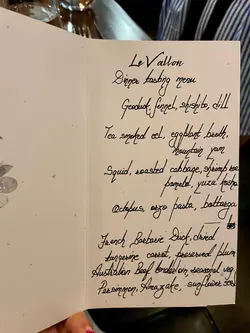 Le Vallon
Dinner tasting menu
Geoduck, fennel, shishito, dill
Tea smoked eel, eggplant broth,
mountain yam
Squid, roasted cabbage, shrimp roe
pomelo, yuzu kosho
Octopus, orzo pasta, bottarga
French Barbarie Duck, dried
tangerine carrot, preserved plum
Australian Beef tenderloin, seasonal veg
Persimmon, Amazake, sunflower seed